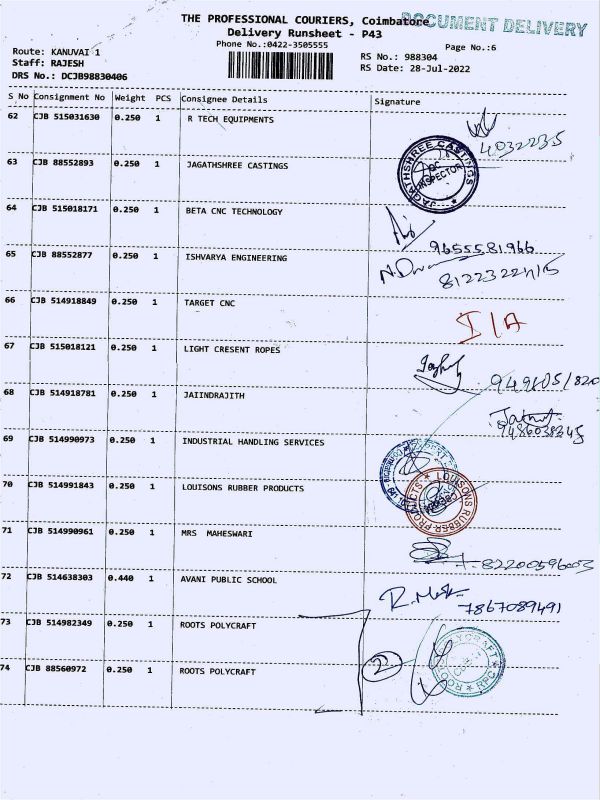 THE PROFESSIONAL COURIERS, Coimbatore
DOCUMENT DELIVERY
Delivery Runsheet - P43
Phone No.:0422-3505555
Page No.:6
Route: KANUVAI 1
RS No.: 988304
Staff: RAJESH
RS Date: 28-Jul-2022
DRS No.: DCJB98830406
S No Consignment No Weight PCS Consignee Details Signature
62 CJB 515031630 0.250 1 R TECH EQUIPMENTS
4032235
63 CJB 88552893 0.250 1 JAGATHSHREE CASTINGS
JAGATHSHREE CASTINGS QC INSPECTOR
64 CJB 515018171 0.250 1 BETA CNC TECHNOLOGY
9655581966
65 CJB 88552877 0.250 1 ISHVARYA ENGINEERING
66 CJB 514918849 0.250 1 TARGET CNC
I/A
67 CJB 515018121 0.250 1 LIGHT CRESENT ROPES
68 CJB 514918781 0.250 1 JAIINDRAJITH
69 CJB 514990973 0.250 1 INDUSTRIAL HANDLING SERVICES
70 CJB 514991843 0.250 1 LOUISONS RUBBER PRODUCTS
LOUISONS RUBBER PRODUCTS
71 CJB 514990961 0.250 1 MRS MAHESWARI
82200596003
72 CJB 514638303 0.440 1 AVANI PUBLIC SCHOOL
7867089491
73 CJB 514982349 0.250 1 ROOTS POLYCRAFT
74 CJB 88560972 0.250 1 ROOTS POLYCRAFT
2
ROOTS POLYCRAFT RPC